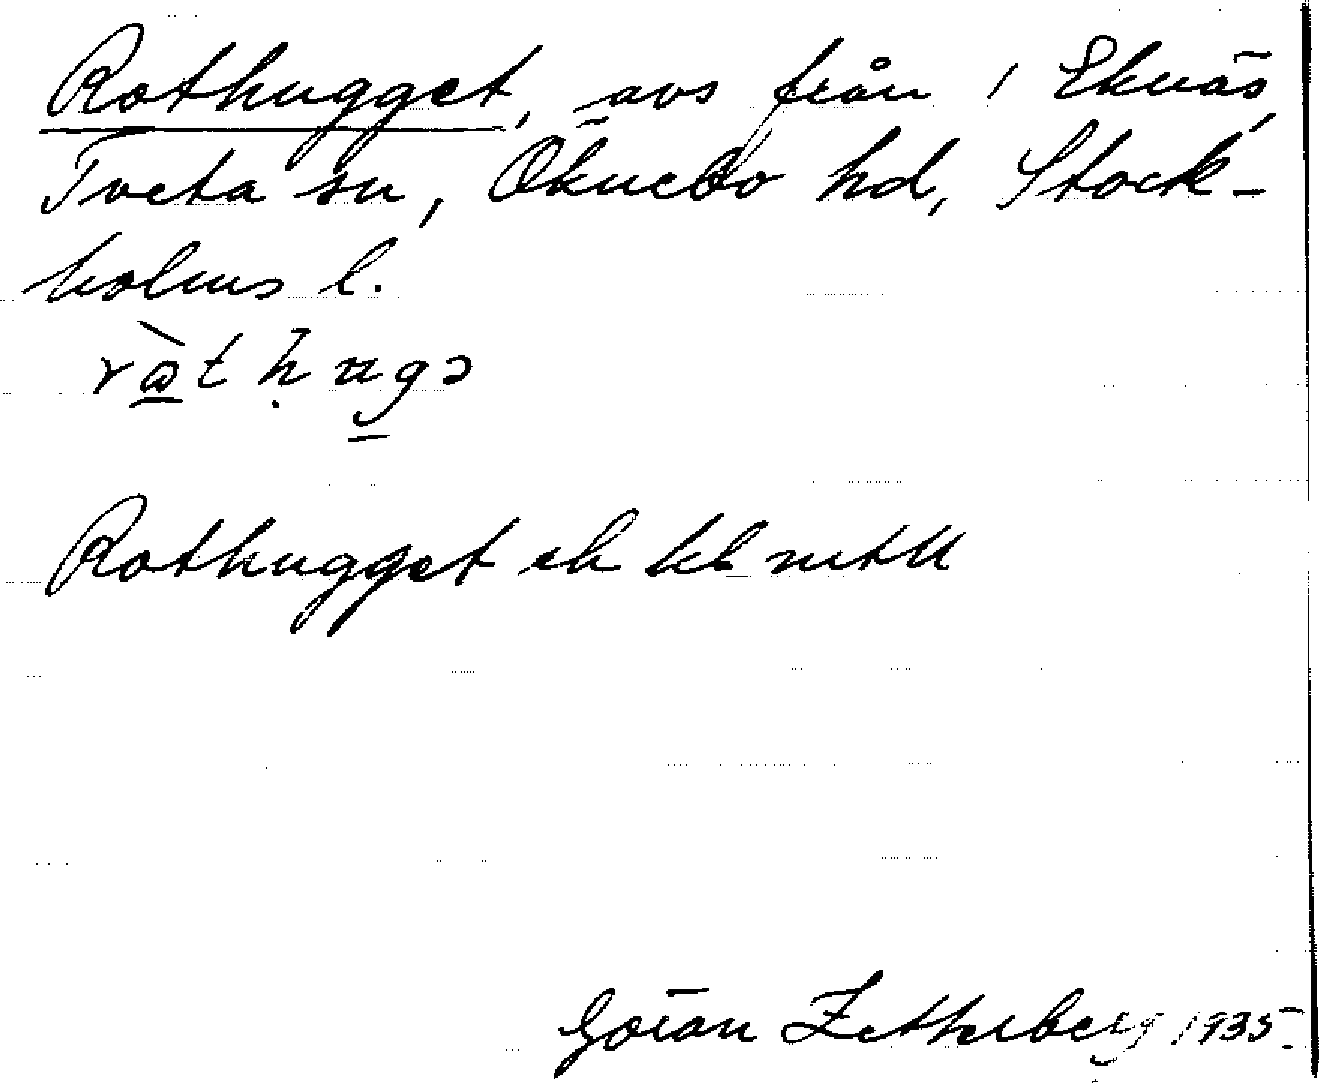 Rothugget, avs från / Eknäs,
Tveta sn, Öknebo hd, Stock-
holms l.
Rothugget ek kb mtll
Göran Zetherberg 1935.